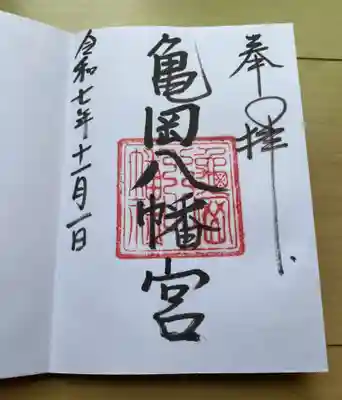 奉拝
亀岡八幡宮
令和七年十一月一日